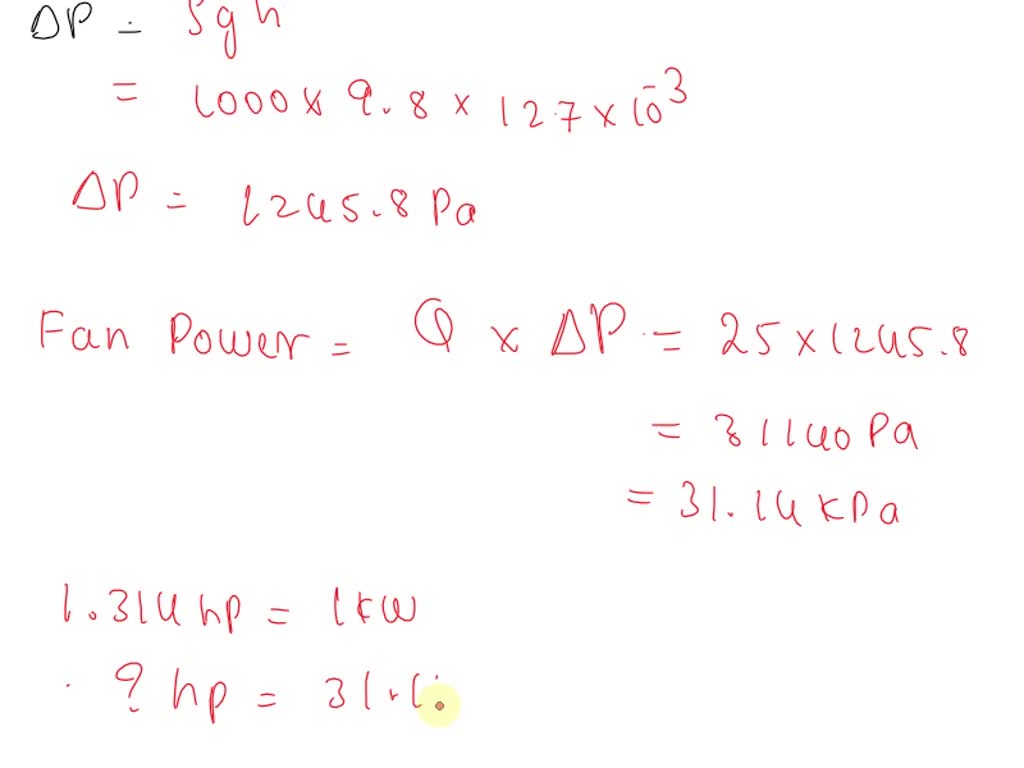 ΔP = ρgh
= 1000 × 9.8 × 127 × 10⁻³
ΔP = 1245.8 Pa
Fan Power = Q × ΔP = 25 × 1245.8
= 31140 Pa
= 31.14 kPa
1.314 hp = 1 kW
? hp = 31.1